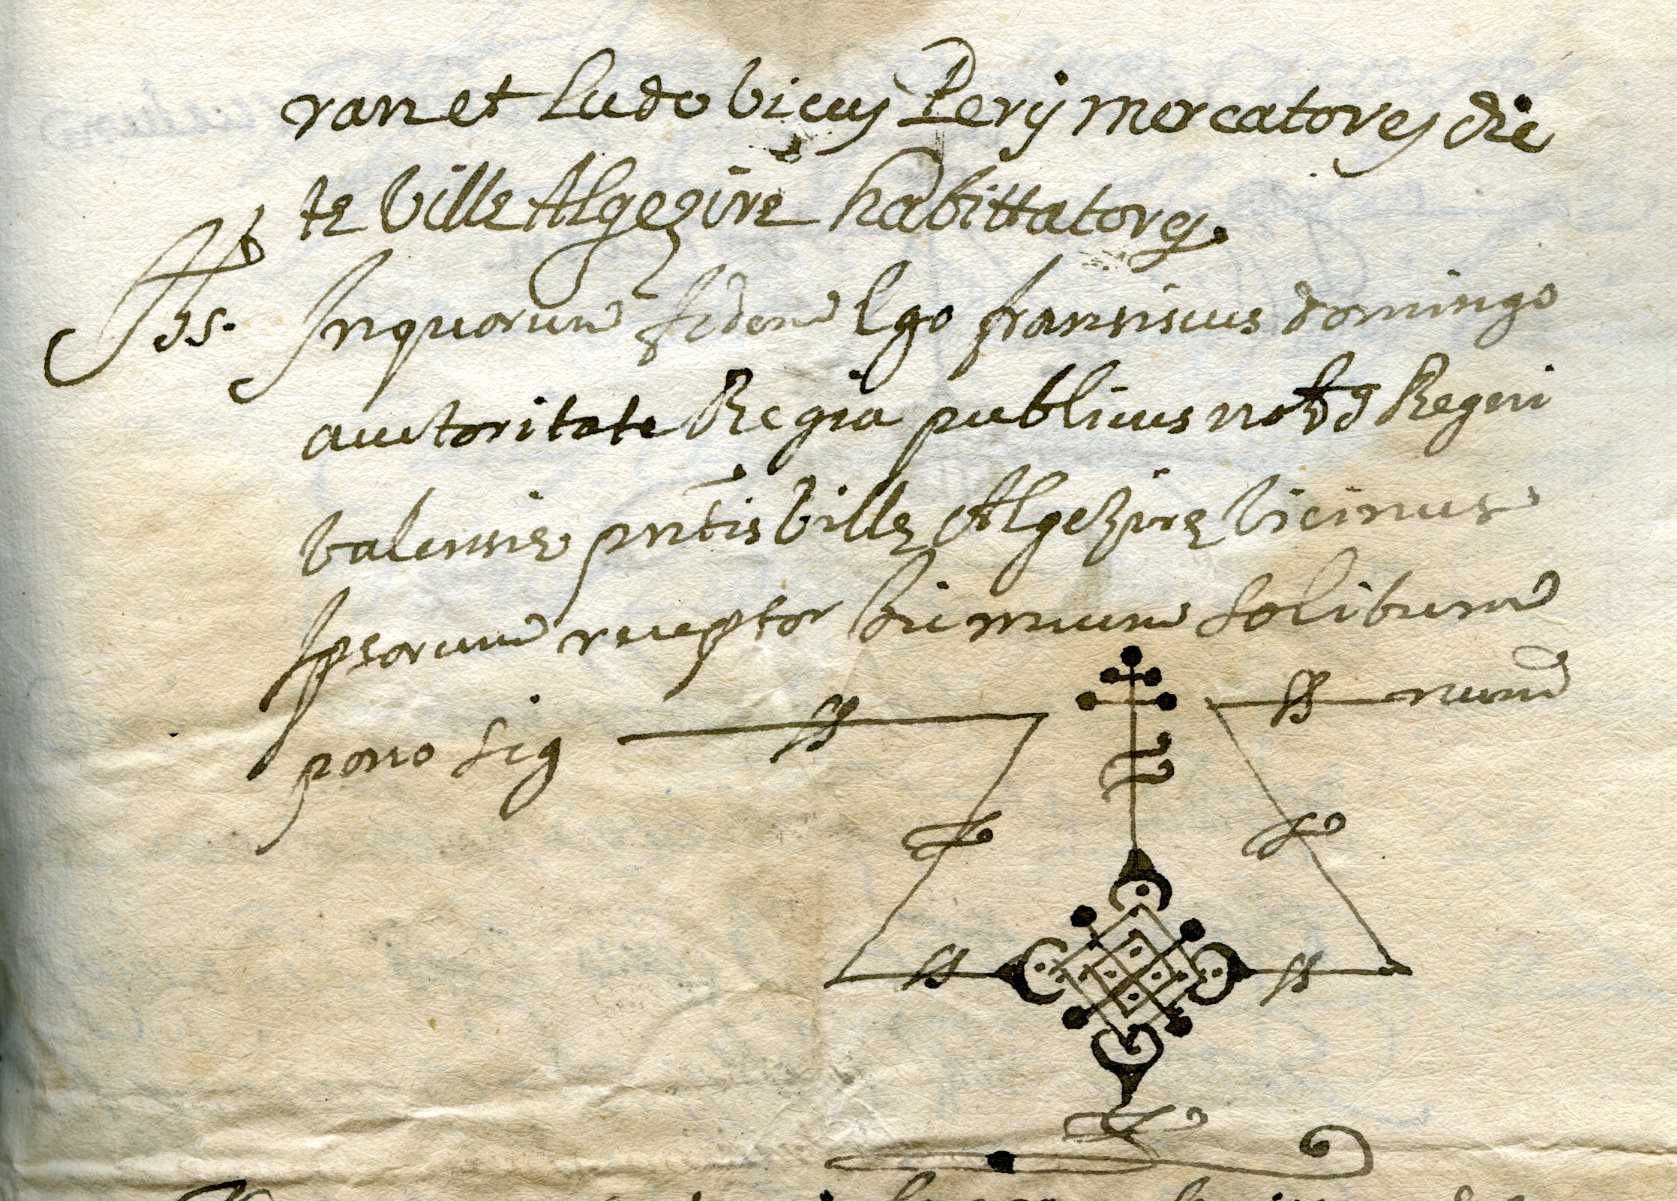 ran et Ludovicus Perij mercatores dic
te ville Algezire habittatores.
In quorum fidem Ego fransiscus domingo
auctoritate Regia publicus not Regni
valensie pntis ville Algezire vicinus
Ipsorum receptor hic meum solitum
pono sig num